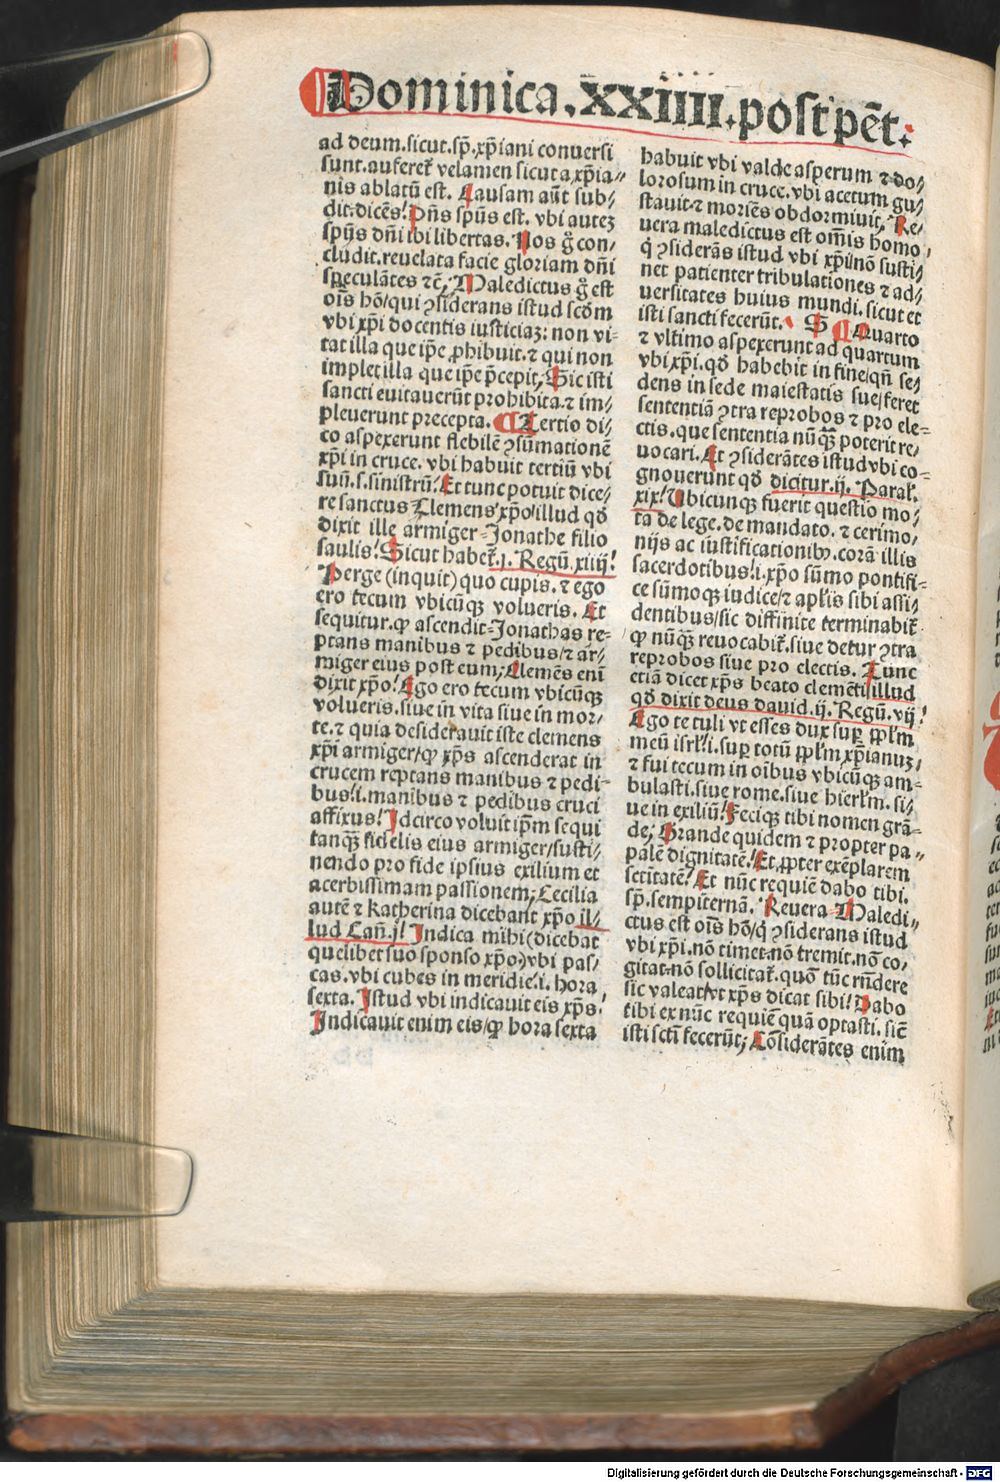 Dominica. XXIIII. post pēt.
ad deum. sicut. sp̄. xp̄iani conuersi
sunt. auferet᷑ velamen sicut a xp̄ia⸗
nis ablatū est. Causam aūt sub⸗
dit. dicēs! Dn̄s sp̄ūs est. vbi autez
sp̄ūs dn̄i ibi libertas. Nos g̊ con⸗
cludit. reuelata facie gloriam dn̄i
speculātes ⁊c̄; Maledictus g̊ est
oīs hō/qui ꝯsiderans istud scd̄m
vbi xp̄i docentis iusticiaz: non vi⸗
tat illa que ip̄e ꝓhibuit. ⁊ qui non
implet illa que ip̄e p̄cepit; Sic isti
sancti euitauerūt prohibita. ⁊ im⸗
pleuerunt precepta. ¶ Tertio di⸗
co aspexerunt flebilē ꝯsūmationē
xp̄i in cruce. vbi habuit tertiū vbi
suū. s. sinistrū! Et tunc potuit dice⸗
re sanctus Clemens xp̄o! illud qd̄
dixit ille armiger Jonathe filio
saulis! Sicut habet᷑. j. Regū. xiiij!
Perge (inquit) quo cupis. ⁊ ego
ero tecum vbicūqꝫ volueris. Et
sequitur. ꝙ ascendit Jonathas re⸗
ptans manibus ⁊ pedibus/⁊ ar⸗
miger eius post eum; Clemēs enī
dixit xp̄o! Ego ero tecum vbicūqꝫ
volueris. siue in vita siue in mor⸗
te. ⁊ quia desiderauit iste clemens
xp̄i armiger/ꝙ xp̄s ascenderat in
crucem reptans manibus ⁊ pedi⸗
bus! i. manibus ⁊ pedibus cruci
affixus! Idcirco voluit ip̄m sequi
tanqꝫ̄ fidelis eius armiger/susti⸗
nendo pro fide ipsius exilium et
acerbissimam passionem; Cecilia
autē ⁊ katherina dicebant xp̄o il⸗
lud Cañ. j! Indica mihi (dicebat
quelibet suo sponso xp̄o) vbi pas⸗
cas. vbi cubes in meridie! i. hora
sexta. Istud vbi indicauit eis xp̄s!
Indicauit enim eis/ꝙ hora sexta
habuit vbi valde asperum ⁊ do⸗
lorosum in cruce. vbi acetum gu⸗
stauit. ⁊ moriēs obdormiuit; Re⸗
uera maledictus est om̄is homo
q̇ ꝯsiderās istud vbi xp̄i/nō susti⸗
net patienter tribulationes ⁊ ad⸗
uersitates huius mundi. sicut et
isti sancti fecerūt. S ¶ Quarto
⁊ vltimo aspexerunt ad quartum
vbi xp̄i. qd̄ habebit in fine/qn̄ se⸗
dens in sede maiestatis sue/feret
sententiā ꝯtra reprobos ⁊ pro ele⸗
ctis. que sententia nūqꝫ̄ poterit re⸗
uocari. Et ꝯsiderātes istud vbi co⸗
gnouerunt qd̄ dicitur. ij. Paral᷑.
xix! Vbicunqꝫ fuerit questio mo⸗
ta de lege. de mandato. ⁊ cerimo⸗
nijs ac iustificationibꝫ. corā illis
sacerdotibus! i. xp̄o sūmo pontifi⸗
ce sūmoqꝫ iudice/⁊ apl̄is sibi assi⸗
dentibus/sic diffinite terminabit᷑
ꝙ nūqꝫ̄ reuocabit᷑. siue detur ꝯtra
reprobos siue pro electis. Tunc
etiā dicet xp̄s beato clementi/illud
qd̄ dixit deus dauid. ij. Regū. vij!
Ego te tuli vt esses dux suꝑ ppl̄m
meū isrl̄! i. suꝑ totū ppl̄m xp̄ianuꝫ.
⁊ fui tecum in oībus vbicūqꝫ am⸗
bulasti. siue rome. siue hierl̄m. si⸗
ue in exiliū! Feciqꝫ tibi nomen grā⸗
de; Grande quidem ⁊ propter pa⸗
palē dignitatē! Et ꝓpter exēplarem
sctitatē! Et nūc requiē dabo tibi.
sp̄. sempiternā. Reuera Maledi⸗
ctus est oīs hō/q̇ ꝯsiderans istud
vbi xp̄i. nō timet. nō tremit. nō co⸗
gitat. nō sollicitat᷑. quō tūc rn̄dere
sic valeat/vt xp̄s dicat sibi! Dabo
tibi ex nūc requiē quā optasti. sicē
isti sctī fecerūt; Cōsiderātes enim
Digitalisierung gefördert durch die Deutsche Forschungsgemeinschaft - DFG